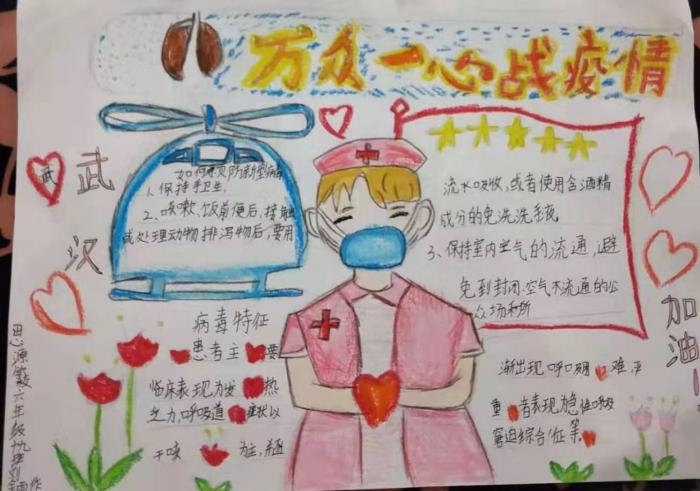 万众一心战疫情
武
武
汉
加油!
如何预防新型病毒
1、保持手卫生,
2、咳嗽、饭前便后、接触
或处理动物排泻物后,要用
流水吸收,或者使用含酒精
成分的免洗洗手液,
3、保持室内空气的流通,避
免到封闭、空气不流通的公
众场和所
病毒特征
患者主要
临床表现为发热
乏力,呼吸道症状以
干咳为主,
渐出现呼吸困难,严
重者表现急性呼吸
窘迫综合征等
六年级九班